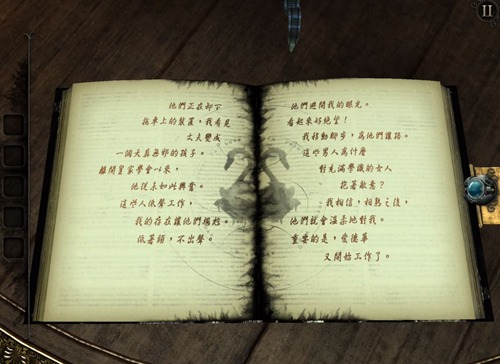 他們正在卸下
拖車上的裝置，我看見
丈夫變成
一個天真無邪的孩子。
離開皇家學會以來，
他從未如此興奮。
這些人依聲工作，
我的存在讓他們擔憂。
低著頭，不出聲。
他們避開我的眼光。
看起來好絕望！
我移動腳步，為他們讓路。
這些男人為什麼
對充滿學識的女人
抱著敵意？
我相信，相熟之後，
他們就會溫柔地對我。
重要的是，愛德華
又開始工作了。